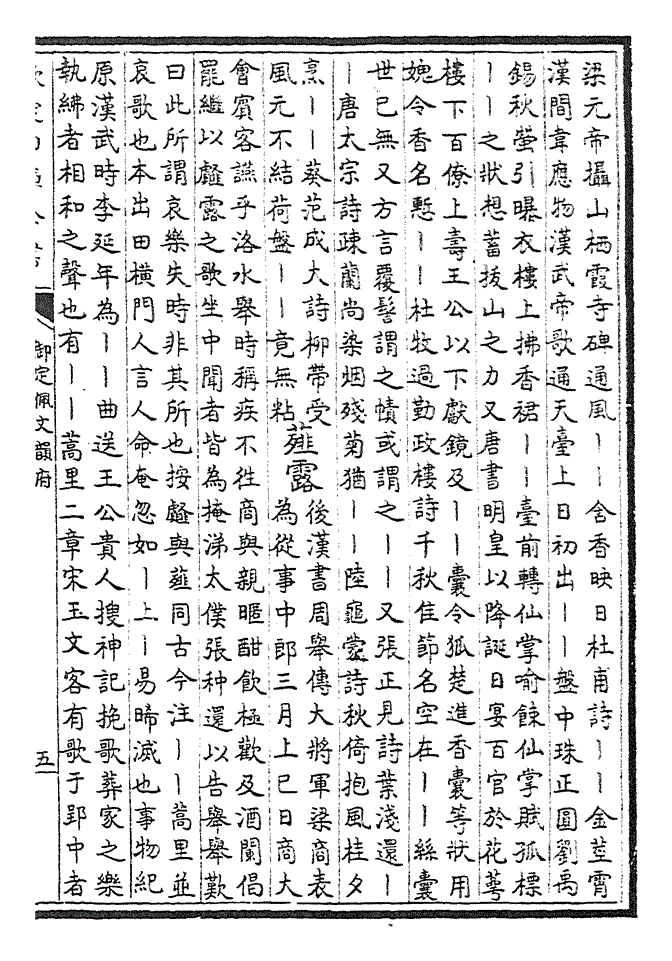 梁元帝攝山栖霞寺碑通風丨丨含香映日杜甫詩丨丨金莖霄
漢間韋應物漢武帝歌通天臺上日初出丨丨盤中珠正圓劉禹
錫秋螢引曝衣樓上拂香裙丨丨臺前轉仙掌喻餗仙掌賦孤標
丨丨之狀想蓄拔山之力又唐書明皇以降誕日宴百官於花萼
樓下百僚上壽王公以下獻鏡及丨丨囊令狐楚進香囊等狀用
媿令香名慙丨丨杜牧過勤政樓詩千秋佳節名空在丨丨絲囊
世已無又方言覆髻謂之幘或謂之丨丨又張正見詩葉淺還丨
丨唐太宗詩疎蘭尚染烟殘菊猶丨丨陸龜蒙詩秋倚抱風桂夕
烹丨丨葵范成大詩柳帶受
風元不結荷盤丨丨竟無粘
薤露
後漢書周舉傳大將軍梁商表
為從事中郎三月上巳日商大
會賓客讌乎洛水舉時稱疾不徃商與親暱酣飲極歡及酒闌倡
罷繼以䪥露之歌坐中聞者皆為掩涕太僕張种還以告舉舉歎
曰此所謂哀樂失時非其所也按䪥與薤同古今注丨丨蒿里並
哀歌也本出田橫門人言人命奄忽如丨上丨易晞滅也事物紀
原漢武時李延年為丨丨曲送王公貴人搜神記挽歌葬家之樂
執紼者相和之聲也有丨丨蒿里二章宋玉文客有歌于郢中者
欽定四庫全書
御定佩文韻府
五